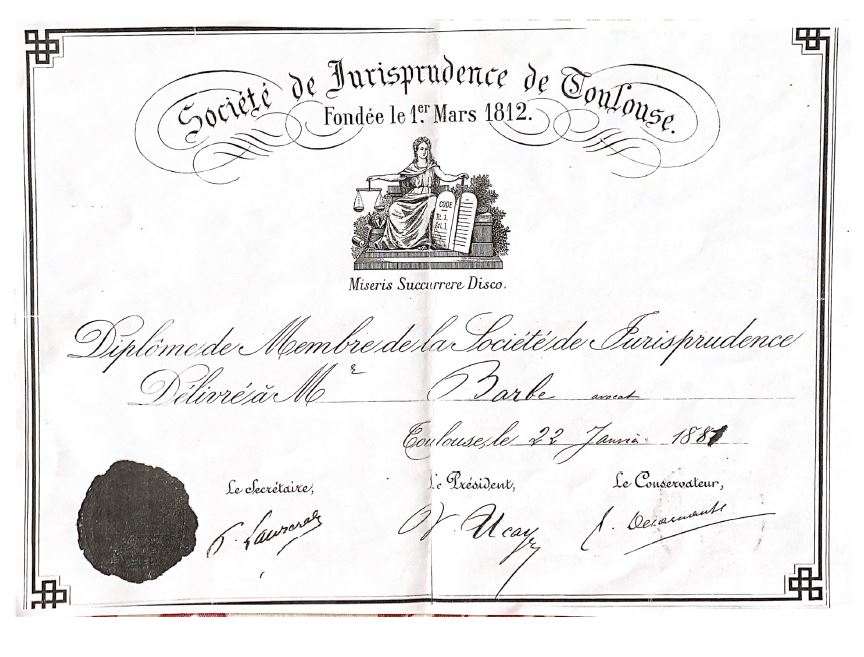 Société de Jurisprudence de Toulouse.
Fondée le 1er. Mars 1812.
CODE
Miseris Succurrere Disco.
Diplôme de Membre de la Société de Jurisprudence
Délivré à Mr Barbe avocat
Toulouse, le 22 Janvier 1881
Le Secrétaire, Le Président, Le Conservateur,
V. Ucay